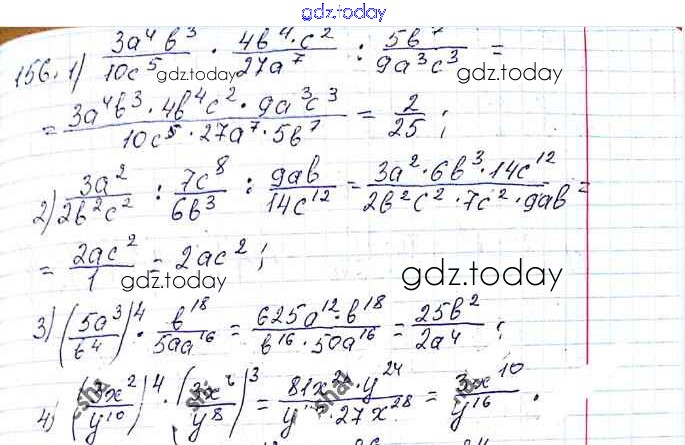 gdz.today
156. 1) 3a⁴b³/10c⁵ · 4b⁴·c²/27a⁷ : 5b⁷/9a³c³ =
gdz.today gdz.today
= 3a⁴b³·4b⁴c²·9a³c³/10c⁵·27a⁷·5b⁷ = 2/25 ;
2) 3a²/2b²c² : 7c⁸/6b³ : 9ab/14c¹² = 3a²·6b³·14c¹²/2b²c²·7c²·9ab =
= 2ac²/1 = 2ac² ;
gdz.today gdz.today
3) (5a³/b⁴)⁴ · b¹⁸/50a¹⁶ = 625a¹²·b¹⁸/b¹⁶·50a¹⁶ = 25b²/2a⁴ ;
4) (3x²/y¹⁰)⁴ · /y⁸)³ = · y²⁴/ · 27x²⁸ = 3x¹⁰/y¹⁶ .